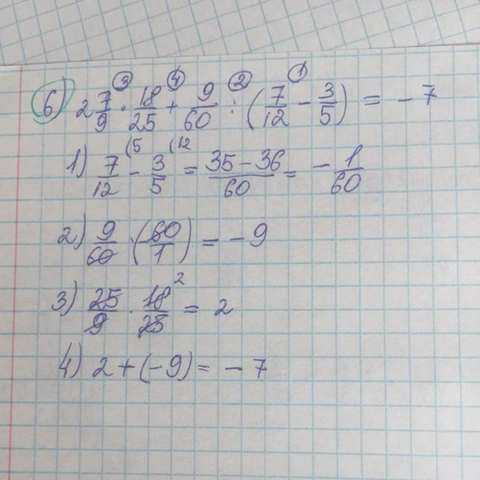 6) 2 7/9 · 18/25 + 9/60 : (7/12 - 3/5) = -7
③ ④ ② ①
1) 7/12 (5 - 3/5 (12 = (35-36)/60 = - 1/60
2) 9/60 · (60/1) = -9
3) 25/9 · 18/25 2 = 2
4) 2 + (-9) = -7